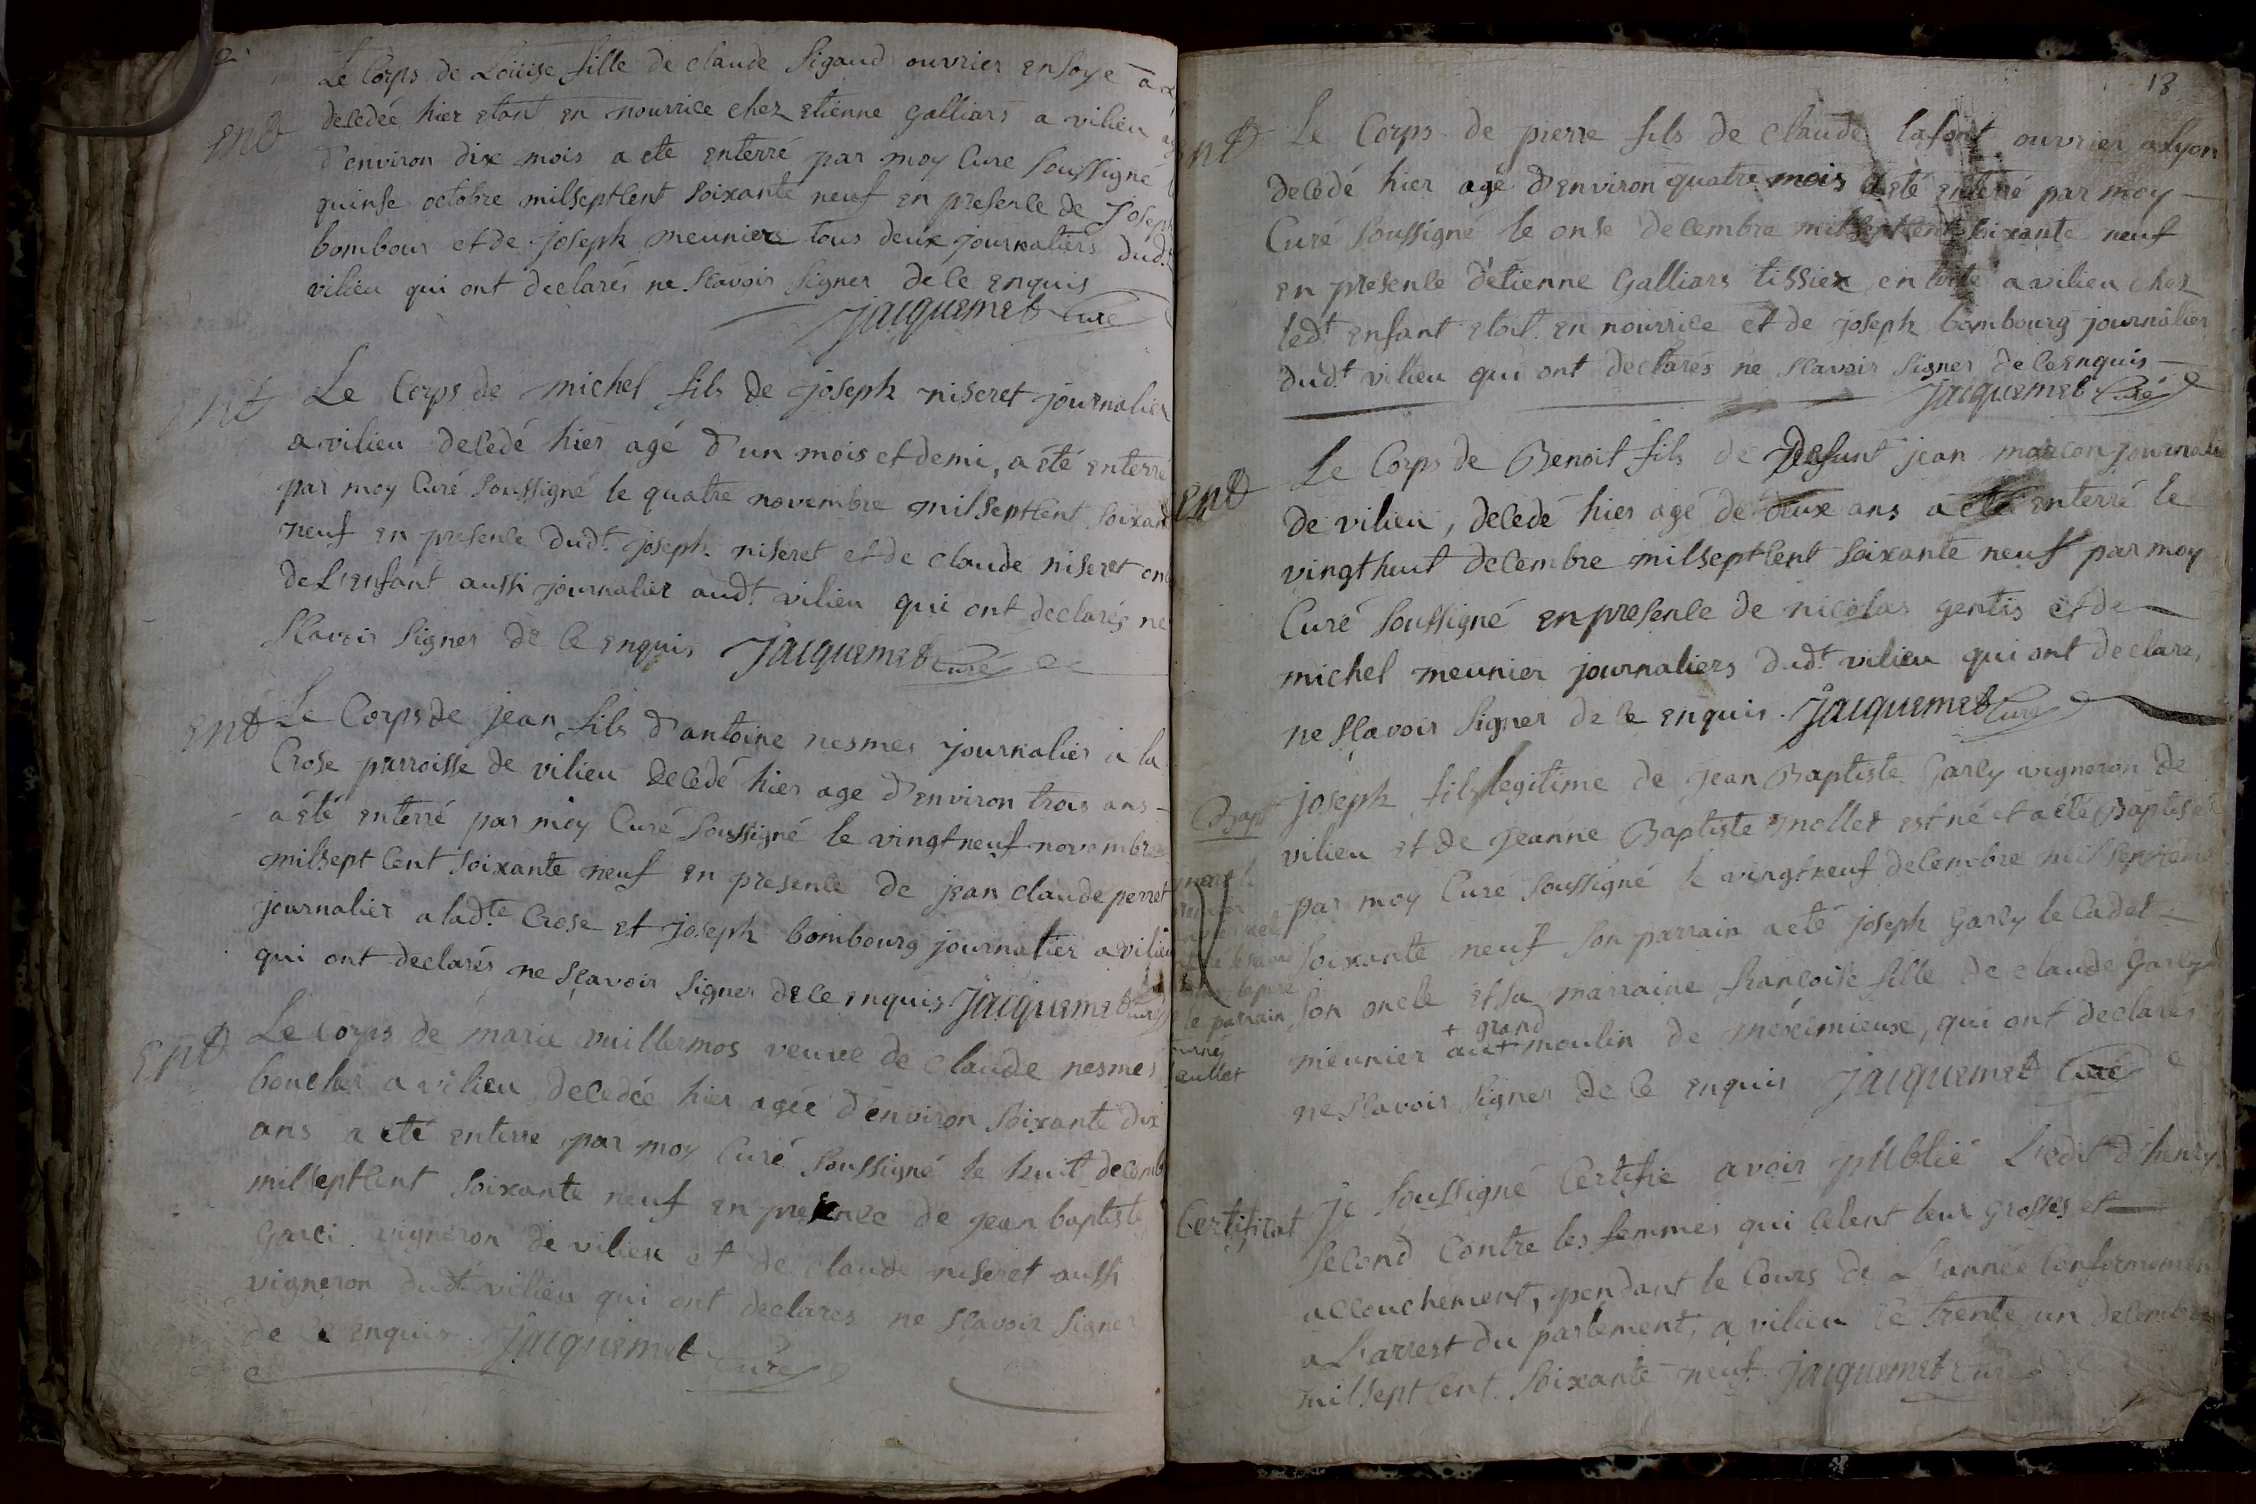 Le Corps de Loüise fille de claude Sigaud ouvrier en soye a
decedée hier etant en nourrice chez etienne Galliars a vilieu
ent
d'environ dix mois a ete enterré par moy Curé soussigné
quinse octobre milseptcent soixante neuf en presence de Joseph
bombour et de joseph meuniers tous deux journaliers dud.t
vilieu qui ont declarés ne scavoir signer de ce enquis
Jacquemet Curé
ent
Le Corps de michel fils de joseph niseret journalier
a vilieu decedé hier agé d'un mois et demi, a été enterré
par moy Curé soussigné le quatre novembre milseptcent soixant
neuf en presence dud.t joseph niseret et de claude niseret
de L'enfant aussi journalier aud.t vilieu qui ont declarés ne
scavoir signer de ce enquis Jacquemet Curé
ent
Le Corps de jean fils d'antoine nesmes journalier a la
Crose parroisse de vilieu decedé hier age d'environ trois ans
a été enterré par moy Curé soussigné le vingt neuf novembre
milsept cent soixante neuf en presence de jean claude perret
journalier a lad.te Crose et joseph bombourg journalier a vilieu
qui ont declarés ne scavoir signer de ce enquis Jacquemet Curé
ent
Le corps de marie vuillermos veuve de claude nesmes
boucher a vilieu decedée hier agée d'environ soixante dix
ans a eté enterré par moy Curé soussigné le huit decemb
milseptcent soixante neuf en presence de jean baptiste
Garci vigneron de vilieu et de claude niseret aussi
vigneron dud.t vilieu qui ont declares ne scavoir signer
de ce enquis Jacquemet Curé
18
ent
Le Corps de pierre fils de claude lafont ouvrier a lyon
decedé hier agé d'environ quatre mois a été enterré par moy
Curé soussigné le onse decembre milseptcent soixante neuf
en presence d'etienne Galliars tissier en toile a vilieu chez
led.t enfant etoit en nourrice et de joseph bombourg journalier
dud.t vilieu qui ont declarés ne scavoir signer de ce enquis
Jacquemet Curé
ent
Le Corps de Benoit fils de Defunt jean marcon journalier
de vilieu, decedé hier agé de deux ans a été enterré le
vingt huit decembre milseptcent soixante neuf par moy
Curé soussigné en presence de nicolas gentis et de
michel meunier journaliers dud.t vilieu qui ont declarés
ne scavoir signer de ce enquis. Jacquemet Curé
Bapt
joseph fils legitime de jean Baptiste Garcy vigneron de
vilieu et de jeanne Baptiste mollet est né et a été Baptisé
par moy Curé soussigné le vingt neuf decembre
soixante neuf son parrain a eté joseph Garcy le Cadet
son oncle et sa marraine francoise fille de claude Garcy
le parrain
+ grand
meunier au+ moulin de meximieux, qui ont declarés
ne scavoir signer de ce enquis Jacquemet Curé
Certificat
Je soussigné Certifie avoir publié L'edit d'henry
second Contre les femmes qui celent leur grosses et
accouchement, pendant le Cours de L'année Conformement
a L'arrest du parlement, a vilieu le trente un decembre
milsept cent soixante neuf. Jacquemet Curé